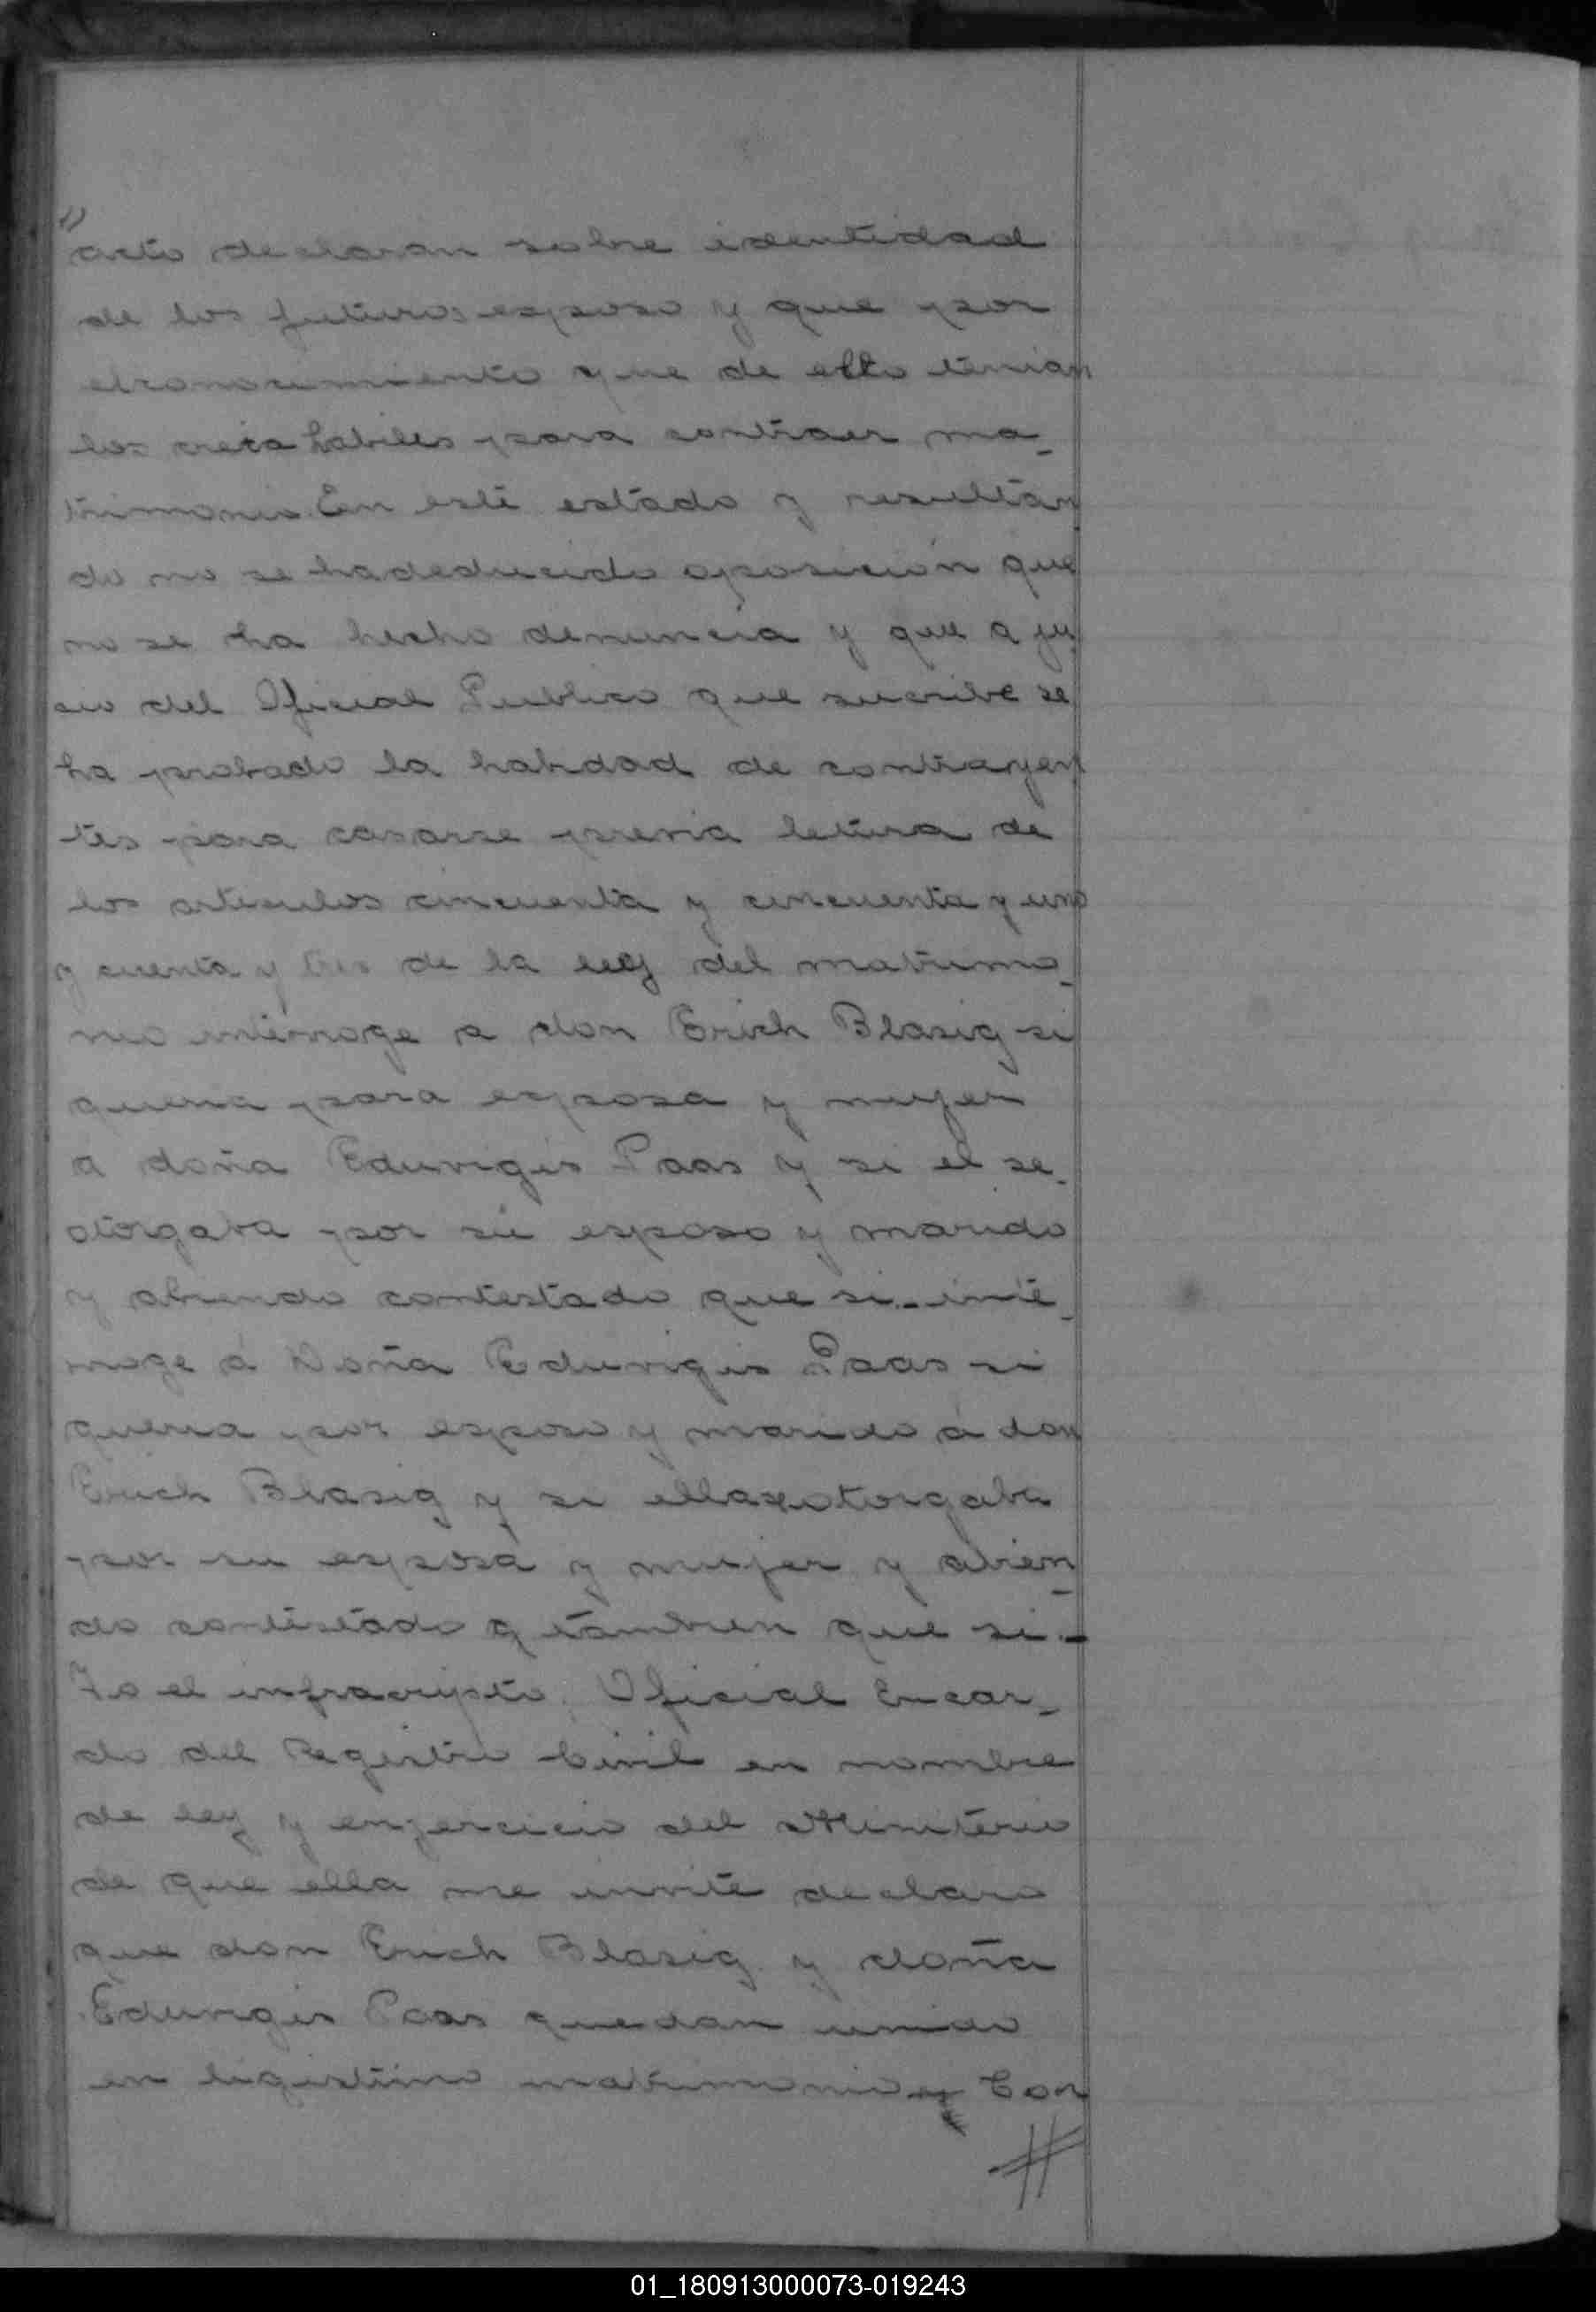 "
acto declaran sobre identidad
de los futuros esposo y que por
elconocimiento que de ello tenian
los creia habiles para contraer ma-
trimonio. En este estado y resultan
do no se hadeducido oposicion que
no se ha hecho denuncia y que a jui
cio del Oficial Publico que sucribe se
ha probado la habidad de contrayen
tes para casarse previa letura de
los articulos cincuenta y cincuenta y uno
y cuenta y tres de la ley del matrimo-
nio interroge a don Erich Blasig si
queria para esposa y mujer
a doña Eduvigis Paas y si el se-
otorgaba por su esposo y marido
y abiendo contestado que si.- inte-
rroge á Doña Eduvigis Paas si
queria por esposo y marido á don
Erich Blasig y si ellaseotorgaba
por su esposa y mujer y abien-
do contestado tambien que si.-
Yo el infracripto, Oficial Encar-
do del Registro Civil en nombre
de ley y enjercicio del Miniterio
de que ella me invite declaro
que don Erich Blasig y doña
Eduvigis Paas quedan unido
en ligistimo matrimonio y Con
#
01_180913000073-019243